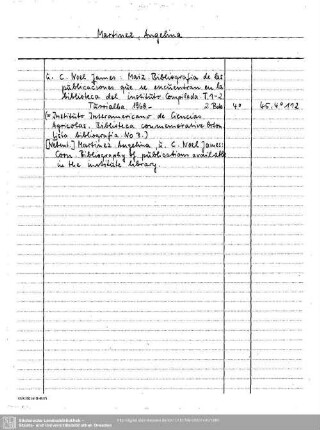 Martinez, Angelina
G. C. Noel James. Maiz Bibliografia de las
publicaciones que se encuentran en la
biblioteca del instituto. Compilada T. 1-2.
Turrialba 1960- 2 Bde 4° 65.4°192
(= Instituto Interamericano de Ciencias
Agricolas. Biblioteca conmemorativa Orton
Lista bibliografia No 3.)
[Nebent.] Martinez Angelina, u. C. Noel James:
Corn. Bibliography of publications available
in the institute library.